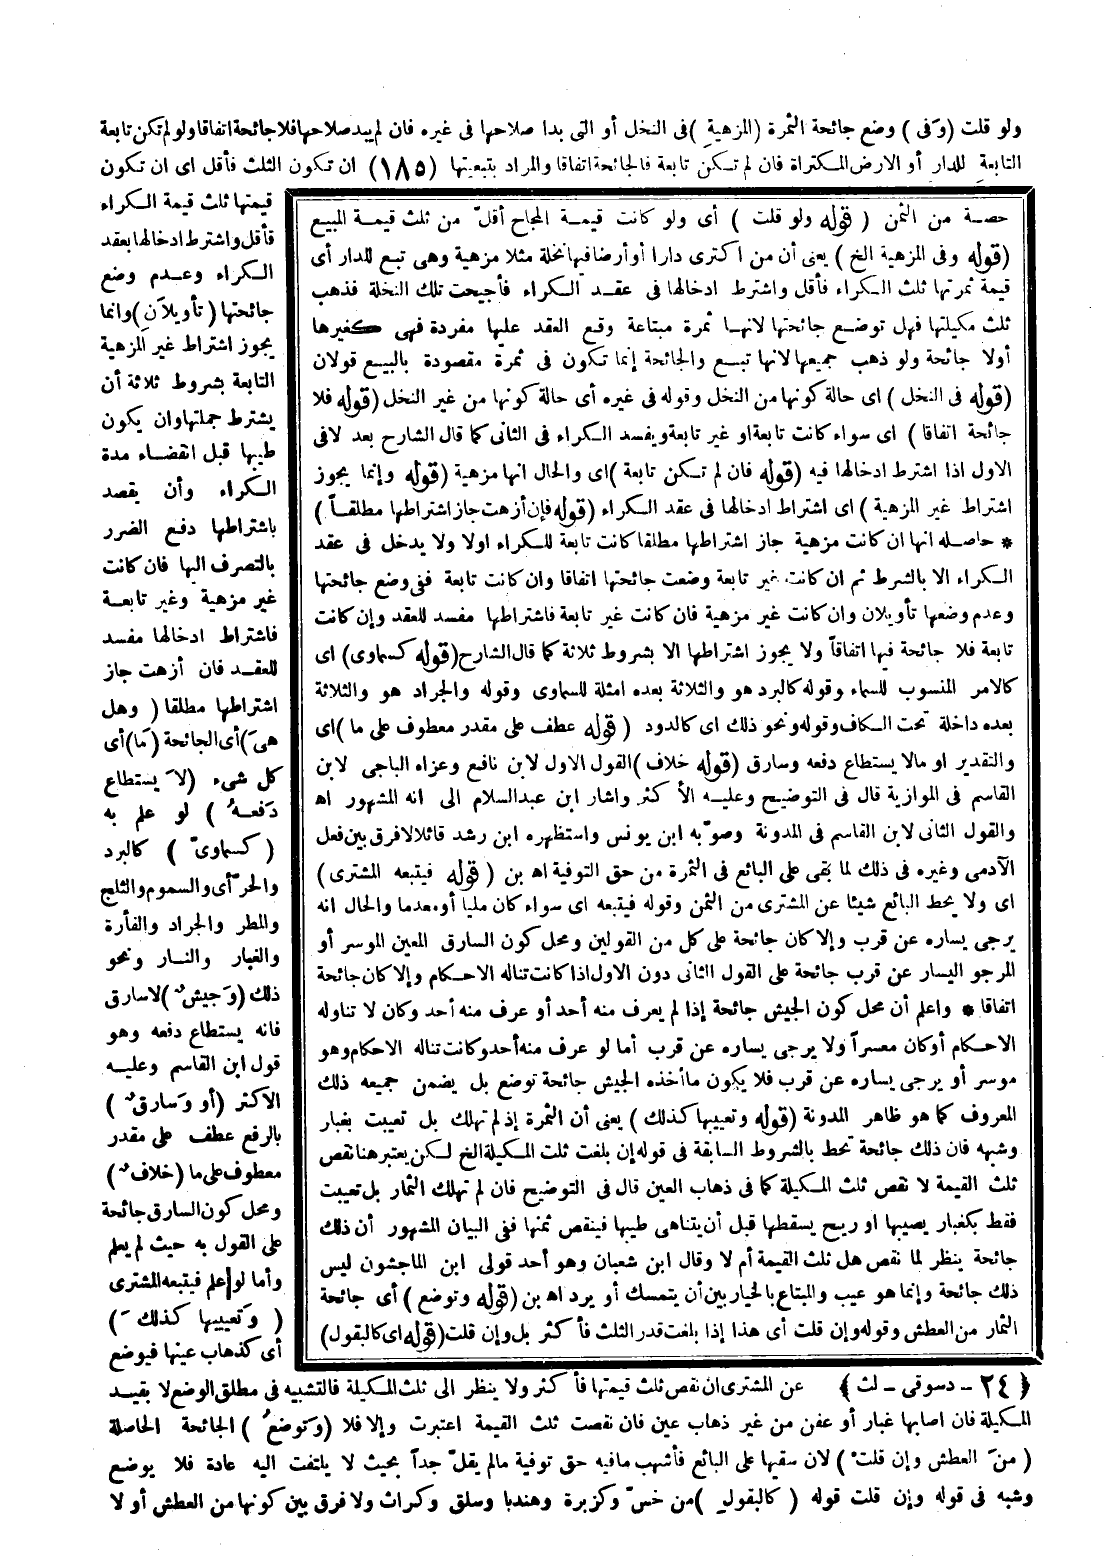 ولو قلت (وَفى) وضع جائحة الثمرة (المزهيةِ) فى النخل أو التى بدا صلاحها فى غيره فان لم يبد صلاحها فلا جائحة اتفاقا ولو لم تكن تابعة
التابعةِ للدار أو الارض المكتراة فان لم تكن تابعة فالجائحة اتفاقا والمراد بتبعيتها (١٨٥) ان تكون الثلث فأقل اى ان تكون
قيمتها ثلث قيمة الكراء
فأقل واشترط ادخالها بعقد
الكراء وعدم وضع
جائحتها (تأويلاَنِ) وانما
يجوز اشتراط غير المزهية
التابعة بشروط ثلاثة أن
يشترط جملتها وان يكون
طيبها قبل انقضاء مدة
الكراء وأن يقصد
باشتراطها دفع الضرر
بالتصرف اليها فان كانت
غير مزهية وغير تابعة
فاشتراط ادخالها مفسد
للعقد فان أزهت جاز
اشتراطها مطلقا (وهل
هىَ) أى الجائحة (مَا) أى
كل شىء (لاَ يستطاع
دَفعهُ) لو علم به
(كسماوىّ) كالبرد
والحرّ أى والسموم والثلج
والمطر والجراد والفأرة
والغبار والنار ونحو
ذلك (وَجيشٌ) لا سارق
فانه يستطاع دفعه وهو
قول ابن القاسم وعليه
الاكثر (أو وَسارقٌ)
بالرفع عطف على مقدر
معطوف على ما (خلافٌ)
ومحل كون السارق جائحة
على القول به حيث لم يعلم
وأما لو علم فيتبعه المشترى
(وَتعييبها كذلكَ)
أى كذهاب عينها فيوضع
حصة من الثمن (قوله ولو قلت) أى ولو كانت قيمة المجاح أقلّ من ثلث قيمة المبيع
(قوله وفى المزهية الخ) يعنى أن من اكترى دارا أو أرضا فيها نخلة مثلا مزهية وهى تبع للدار أى
قيمة ثمرتها ثلث الكراء فأقل واشترط ادخالها فى عقد الكراء فأجيحت تلك النخلة فذهب
ثلث مكيلتها فهل توضع جائحتها لانها ثمرة مبتاعة وقع العقد عليها مفردة فهى كغيرها
أولا جائحة ولو ذهب جميعها لانها تبع والجائحة إنما تكون فى ثمرة مقصودة بالبيع قولان
(قوله فى النخل) اى حالة كونها من النخل وقوله فى غيره أى حالة كونها من غير النخل (قوله فلا
جائحة اتفاقا) اى سواء كانت تابعة او غير تابعة ويفسد الكراء فى الثانى كما قال الشارح بعد لافى
الاول اذا اشترط ادخالها فيه (قوله فان لم تكن تابعة) اى والحال انها مزهية (قوله وإنما يجوز
اشتراط غير المزهية) اى اشتراط ادخالها فى عقد الكراء (قوله فإن أزهت جاز اشتراطها مطلقاً)
* حاصله انها ان كانت مزهية جاز اشتراطها مطلقا كانت تابعة للكراء اولا ولا يدخل فى عقد
الكراء الا بالشرط ثم ان كانت غير تابعة وضعت جائحتها اتفاقا وان كانت تابعة ففى وضع جائحتها
وعدم وضعها تأويلان وان كانت غير مزهية فان كانت غير تابعة فاشتراطها مفسد للعقد وإن كانت
تابعة فلا جائحة فيها اتفاقاً ولا يجوز اشتراطها الا بشروط ثلاثة كما قال الشارح (قوله كسماوى) اى
كالامر المنسوب للسماء وقوله كالبرد هو والثلاثة بعده امثلة للسماوى وقوله والجراد هو والثلاثة
بعده داخلة تحت الكاف وقوله ونحو ذلك اى كالدود (قوله عطف على مقدر معطوف على ما) اى
والتقدير او مالا يستطاع دفعه وسارق (قوله خلاف) القول الاول لابن نافع وعزاه الباجى لابن
القاسم فى الموازية قال فى التوضيح وعليه الأكثر واشار ابن عبدالسلام الى انه المشهور اه
والقول الثانى لابن القاسم فى المدونة وصوّبه ابن يونس واستظهره ابن رشد قائلا لافرق بين فعل
الآدمى وغيره فى ذلك لما بقى على البائع فى الثمرة من حق التوفية اه بن (قوله فيتبعه المشترى)
اى ولا يحط البائع شيئا عن المشترى من الثمن وقوله فيتبعه اى سواء كان مليا أو معدما والحال انه
يرجى يساره عن قرب والا كان جائحة على كل من القولين ومحل كون السارق المعين الموسر أو
المرجو اليسار عن قرب جائحة على القول الثانى دون الاول اذا كانت تناله الاحكام والا كان جائحة
اتفاقا * واعلم أن محل كون الجيش جائحة إذا لم يعرف منه أحد أو عرف منه أحد وكان لا تناوله
الاحكام أو كان معسراً ولا يرجى يساره عن قرب أما لو عرف منه أحد وكانت تناله الاحكام وهو
موسر أو يرجى يساره عن قرب فلا يكون ما أخذه الجيش جائحة توضع بل يضمن جميعه ذلك
المعروف كما هو ظاهر المدونة (قوله وتعييبها كذلك) يعنى أن الثمرة إذ لم تهلك بل تعيبت بغبار
وشبهه فان ذلك جائحة تحط بالشروط السابقة فى قوله إن بلغت ثلث المكيلة الخ لكن يعتبر هنا نقص
ثلث القيمة لا نقص ثلث المكيلة كما فى ذهاب العين قال فى التوضيح فان لم تهلك الثمار بل تعيبت
فقط بكغبار يصيبها او ريح يسقطها قبل أن يتناهى طيبها فينقص ثمنها ففى البيان المشهور أن ذلك
جائحة ينظر لما نقص هل ثلث القيمة أم لا وقال ابن شعبان وهو أحد قولى ابن الماجشون ليس
ذلك جائحة وإنما هو عيب والمبتاع بالخيار بين أن يتمسك أو يرد اه بن (قوله وتوضع) أى جائحة
الثمار من العطش وقوله وإن قلت أى هذا إذا بلغت قدر الثلث فأكثر بل وإن قلت (قوله اى كالبقول)
(٢٤ - دسوقى - لث) عن المشترى ان نقص ثلث قيمتها فأكثر ولا ينظر الى ثلث المكيلة فالتشبيه فى مطلق الوضع لا بقيد
المكيلة فان اصابها غبار أو عفن من غير ذهاب عين فان نقصت ثلث القيمة اعتبرت وإلا فلا (وَتوضعُ) الجائحة الحاصلة
(منَ العطش وإن قلتْ) لان سقيها على البائع فأشهب مافيه حق توفية مالم يقلّ جداً بحيث لا يلتفت اليه عادة فلا يوضع
وشبه فى قوله وإن قلت قوله (كالبقولِ) من خسّ وكزبرة وهندبا وسلق وكراث ولا فرق بين كونها من العطش أو لا